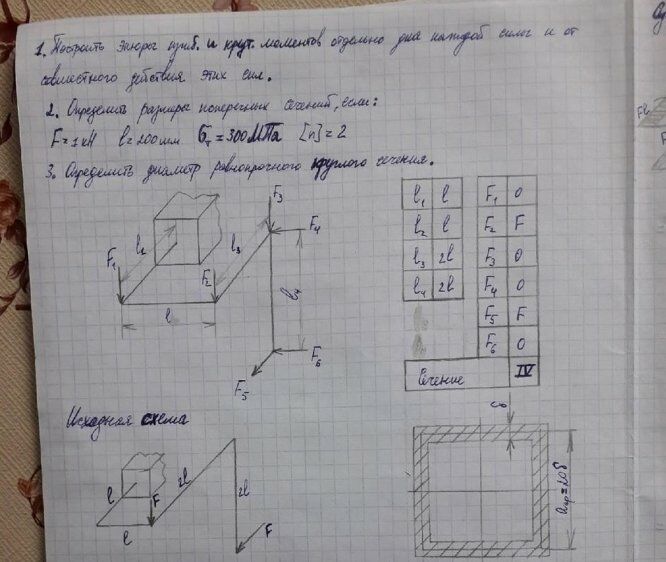 1. Построить эпюры изгиб. и крут. моментов отдельно для каждой силы и от
совместного действия этих сил.
2. Определить размеры поперечных сечений, если:
F = 1 кН l = 200 мм σт = 300 МПа [n] = 2
3. Определить диаметр равнопрочного круглого сечения.
l₁ l F₁ 0
l₂ l F₂ F
l₃ 2l F₃ 0
l₄ 2l F₄ 0
F₅ F
F₆ 0
Сечение IV
F₃
F₄
l₂
l₃
F₁
F₂
l
l₄
F₆
F₅
Исходная схема
l
F
2l
2l
l
F
δ
aср = 20δ
Fl
F